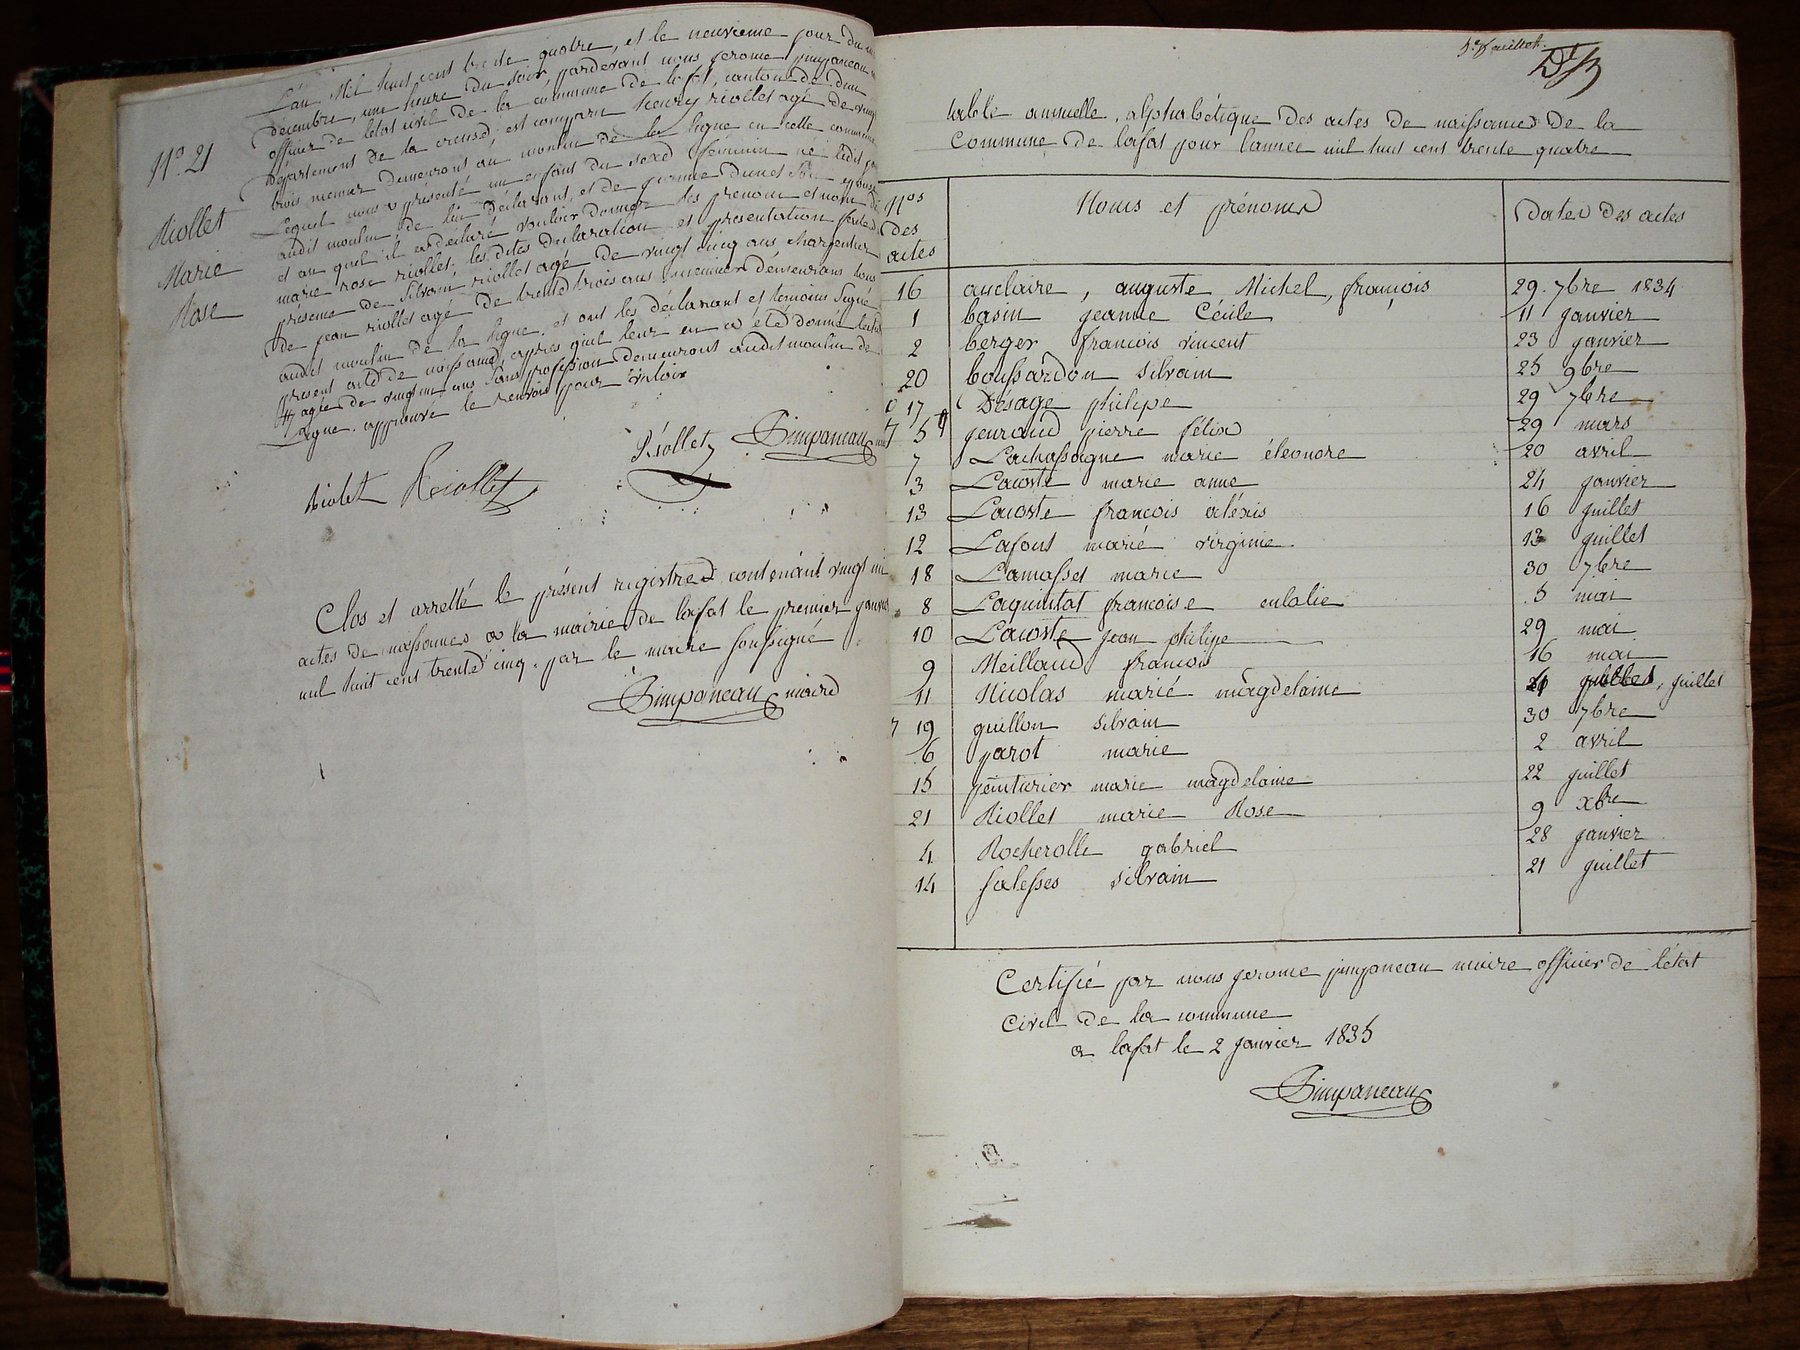 L'an Mil huit cent trente quatre, et le neuvieme jour du
decembre, une heure du soir, pardevant nous jerome pimpaneau
officier de letat civil de la commune de lafat, canton de dun
Departement de la creuse est comparu henry riollet agé de vingt
trois meunier demeurant au moulin de la ligne en cette commune
Lequel nous a présenté un enfant du sexe feminin né
audit moulin de lui Déclarant et de
et au quel il a déclaré vouloir donner les prenom et nom de
marie rose riollet, les dites declaration et presentation faite
presence de silvain riollet agé de vingt cinq ans charpentier
De jean riollet agé de trente trois ans meunier demeurans tous
audit moulin de la ligne. et ont les déclarant et temoins signé
present acte de naissance, apres quil leur en a été donné
agée de vingt un ans sans profession demeurant audit moulin de
Ligne. approuvé le renvoi pour valoir
Nº. 21
Riollet
Marie
Rose
Riollet Pimpaneau
Riolet Reiollet
Clos et arretté le présent registre contenant vingt un
actes de naissances a la mairie de lafat le premier janvier
mil huit cent trente cinq. par le maire soussigné
Pimpaneau maire
table annuelle, alphabétique des actes de naissance de la
Commune de lafat pour lannee mil huit cent trente quatre
Nos des actes Noms et prénoms Dates des actes
16 auclaire, auguste Michel, françois 29. 7bre 1834
1 basin jeanne Cécile 11 janvier
2 berger francois vincent 23 janvier
20 boussardon silvain 25 9bre
17 Désage philipe 29 7bre
5 jeuraud pierre félix 29 mars
7 Lachassagne marie éléonore 20 avril
3 Lacoste marie anne 24 janvier
13 Lacoste francois aléxis 16 juillet
12 Lafont marie virginie 13 juillet
18 Lamasset marie 30 7bre
8 Laquintat francoise eulalie 5 mai
10 Lacoste jean philipe 29 mai
9 Meillaud francois 16 mai
11 Nicolas marie magdelaine juillet
19 guillon silvain 30 7bre
6 parot marie 2 avril
15 peinturier marie magdelaine 22 juillet
21 Riollet marie Rose 9 xbre
4 Rocherolle gabriel 28 janvier
14 salesses silvain 21 juillet
Certifié par nous jerome pimpaneau maire officier de létat
Civil de la commune
a lafat le 2 janvier 1835
Pimpaneau